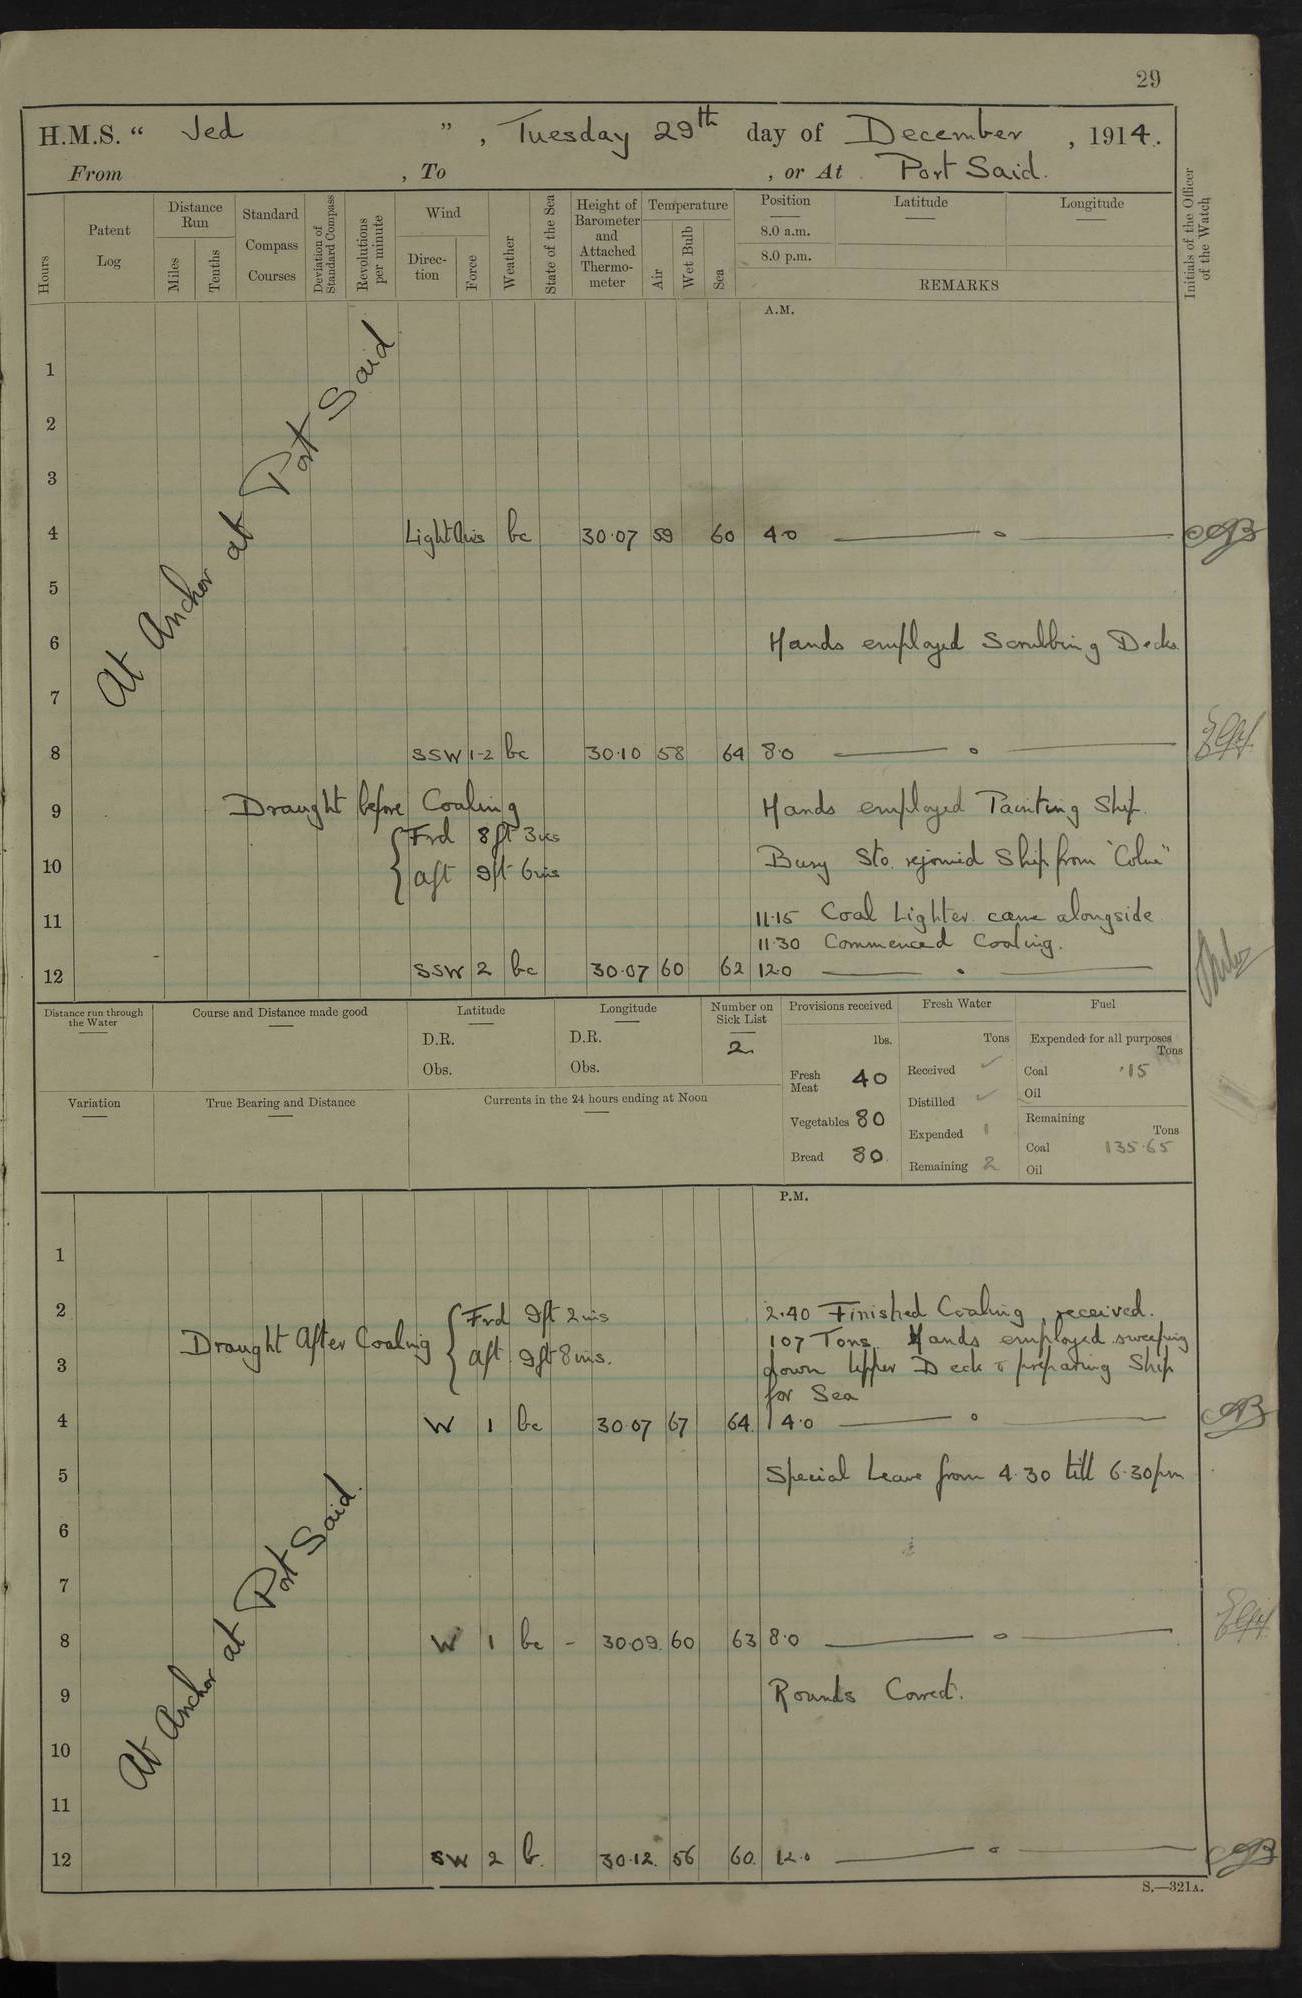 29
H.M.S. “ Jed ” , Tuesday 29th day of December , 1914.
From , To , or At Port Said.
Hours
Patent Log
Distance Run
Miles
Tenths
Standard Compass Courses
Deviation of Standard Compass
Revolutions per minute
Wind
Direction
Force
Weather
State of the Sea
Height of Barometer and Attached Thermometer
Temperature
Air
Wet Bulb
Sea
Position
8.0 a.m.
8.0 p.m.
Latitude
Longitude
REMARKS
Initials of the Officer of the Watch
A.M.
At Anchor at Port Said
1
2
3
4 Light Airs bc 30.07 59 60 4.0
5
6 Hands employed Scrubbing Decks
7
8 SSW 1-2 bc 30.10 58 64 8.0
9 Draught before Coaling Hands employed Painting Ship.
Frd 8ft 3ins
10 aft 9ft 6ins Sto. rejoined Ship from "Colne"
11 11.15 Coal Lighter came alongside
11.30 Commenced Coaling.
12 SSW 2 bc 30.07 60 62 12.0
Distance run through the Water
Course and Distance made good
Latitude
D.R.
Obs.
Longitude
D.R.
Obs.
Number on Sick List
2
Provisions received
lbs.
Fresh Meat 40
Vegetables 80
Bread 80
Fresh Water
Tons
Received
Distilled
Expended 1
Remaining 2
Fuel
Expended for all purposes
Tons
Coal .15
Oil
Remaining
Tons
Coal 135.65
Oil
Variation
True Bearing and Distance
Currents in the 24 hours ending at Noon
P.M.
1
2 Frd 9ft 2ins 2.40 Finished Coaling received.
Draught After Coaling 107 Tons. Hands employed sweeping
3 aft 9ft 8ins. down Upper Deck & preparing Ship
for Sea
4 W 1 bc 30.07 67 64 4.0
5 Special Leave from 4.30 till 6.30pm
6
7
8 W 1 bc - 30.09 60 63 8.0
9 Rounds Correct.
10
11
12 SW 2 b. 30.12 56 60 12.0
At Anchor at Port Said.
S.—321A.